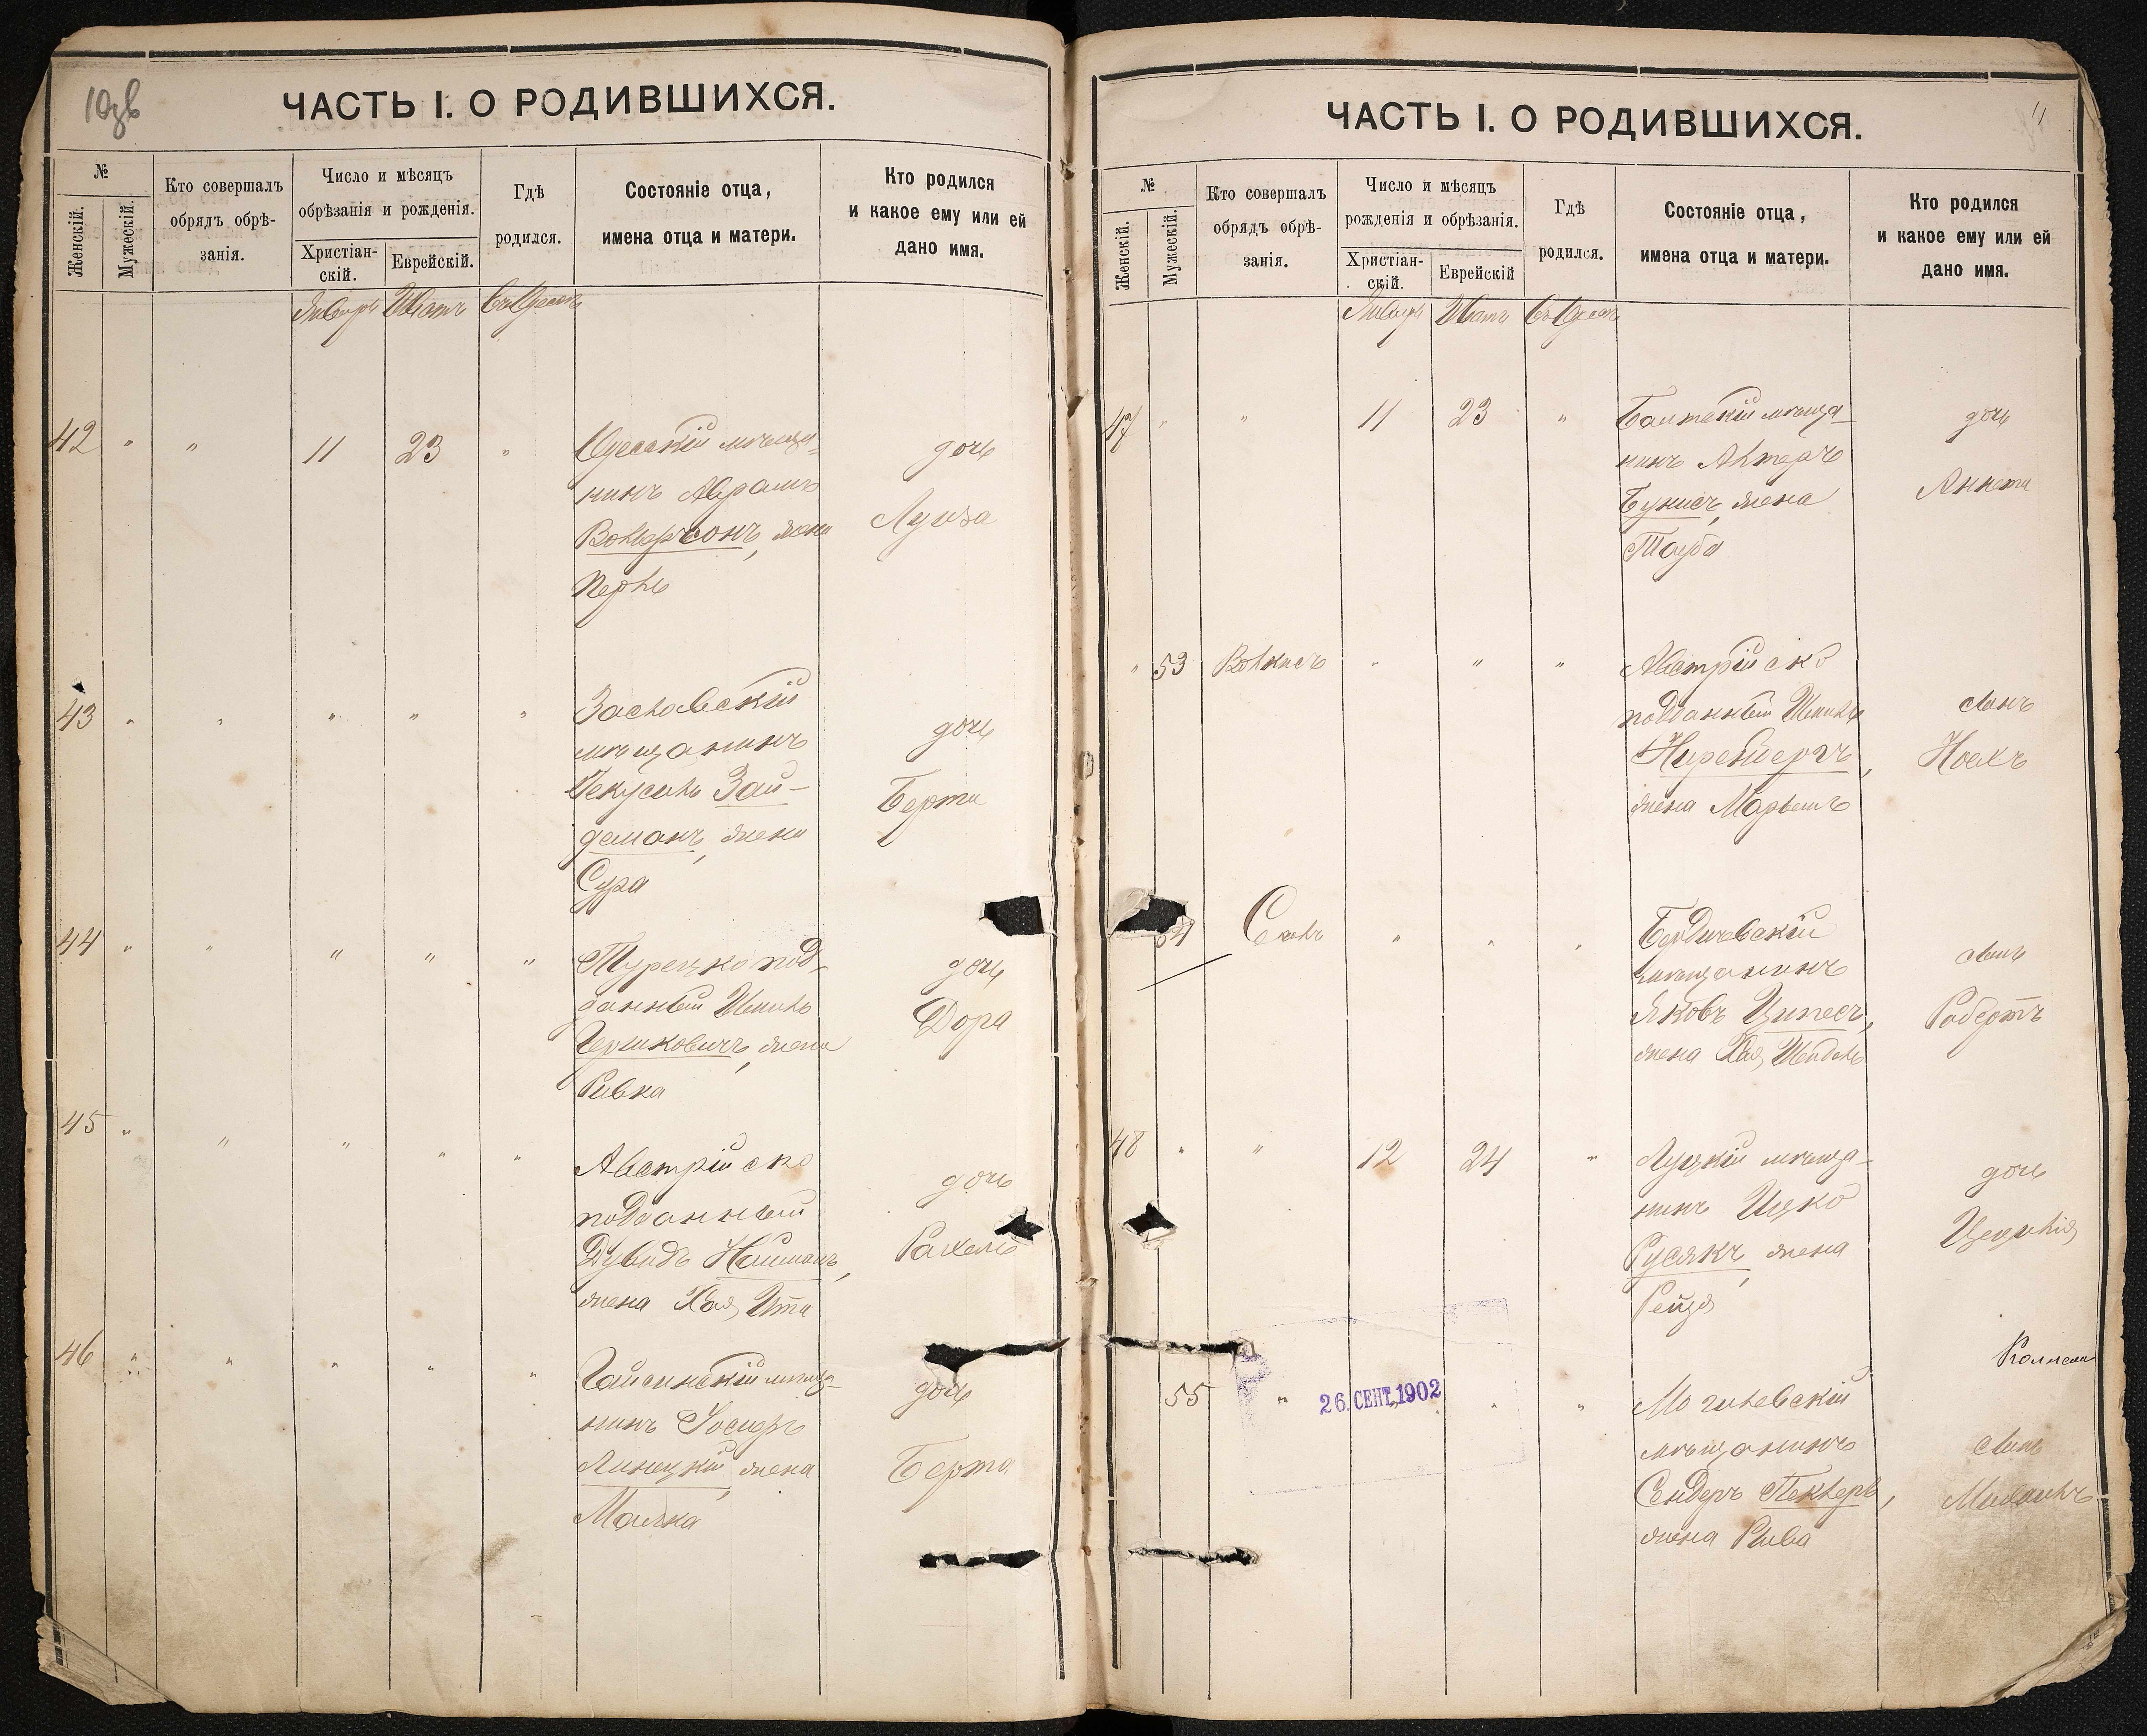 10 об
ЧАСТЬ I. О РОДИВШИХСЯ.
№
Женскій.
Мужескій.
Кто совершалъ
обрядъ обрѣ-
занія.
Число и мѣсяцъ
обрѣзанія и рожденія.
Христіан-
скій.
Еврейскій.
Гдѣ
родился.
Состояніе отца,
имена отца и матери.
Кто родился
и какое ему или ей
дано имя.
Январь Шватъ Въ Одессѣ
42 " " 11 23 " Одесскій мѣща-
нинъ Аврамъ
жена
Перль
дочь
Луиза
43 " " " " " Заславскій
мѣщанинъ
Зай-
деманъ, жена
Сура
дочь
Берта
44 " " " " " Турецко под-
данный
Гершковичъ, жена
Ривка
дочь
Дора
45 " " " " " Австрійско
подданный
Дувидъ Найманъ,
жена Хая Ита
дочь
Рахель
46 " " " " " Гайсинскій мѣща-
нинъ Іосифъ
Линецкій, жена
Малка
дочь
Берта
11
ЧАСТЬ I. О РОДИВШИХСЯ.
№
Женскій.
Мужескій.
Кто совершалъ
обрядъ обрѣ-
занія.
Число и мѣсяцъ
рожденія и обрѣзанія.
Христіан-
скій.
Еврейскій
Гдѣ
родился.
Состояніе отца,
имена отца и матери.
Кто родился
и какое ему или ей
дано имя.
Январь Шватъ Въ Одессѣ
47 " " 11 23 " Балтскій мѣща-
нинъ Алтеръ
жена
Тауба
дочь
Аннета
" 53 " " " Австрійско
подданный
Ниренбергъ,
жена Марьемъ
сынъ
54 " " " Бердичевскій
мѣщанинъ
Яковъ Ципесъ,
жена Хая
сынъ
Робертъ
48 " " 12 24 " Луцкій мѣща-
нинъ Ицко
Русякъ, жена
Рейзя
дочь
Цецилія
55 " " " " Могилевскій
мѣщанинъ
Сендеръ Пеклеръ,
жена Рива
сынъ
Михаилъ
26. СЕНТ. 1902